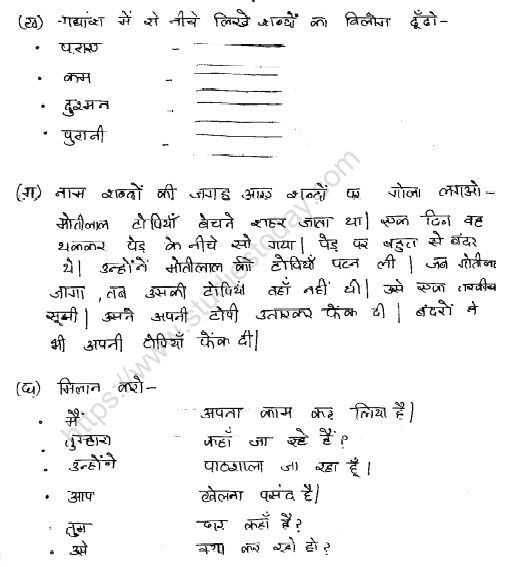 (ख) गद्यांश में से नीचे लिखे शब्दों का विलोम ढूँढो-
• पराए -
• कम -
• दुश्मन -
• पुरानी -
(ग) नाम शब्दों की जगह आए शब्दों पर गोला लगाओ-
मोतीलाल टोपियाँ बेचने शहर जाता था| एक दिन वह
थककर पेड़ के नीचे सो गया| पेड़ पर बहुत से बंदर
थे| उन्होंनें मोतीलाल की टोपियाँ पहन ली | जब मोतीलाल
जागा , तब उसकी टोपियाँ वहाँ नहीं थी| उसे एक तरकीब
सूझी | उसने अपनी टोपी उतारकर फेंक दी | बंदरों ने
भी अपनी टोपियाँ फेंक दी|
(घ) मिलान करो-
• मैं अपना काम कर लिया है|
• तुम्हारा कहाँ जा रहे हैं?
• उन्होंने पाठशाला जा रहा हूँ|
• आप खेलना पसंद है|
• तुम घर कहाँ है?
• उसे क्या कर रहे हो?
https://www.studiestoday.com